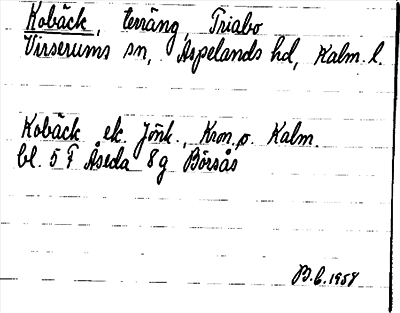 Kobäck, terräng, Triabo
Virserums sn, Aspelands hd, Kalm. l.
Kobäck ek. Jönk., Kron. o. Kalm.
bl. 5 F Åseda 8 g Börsås
B. C. 1958